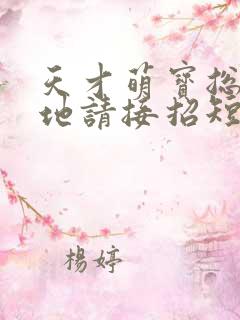 天才萌寶总
地請接招短
楊婷